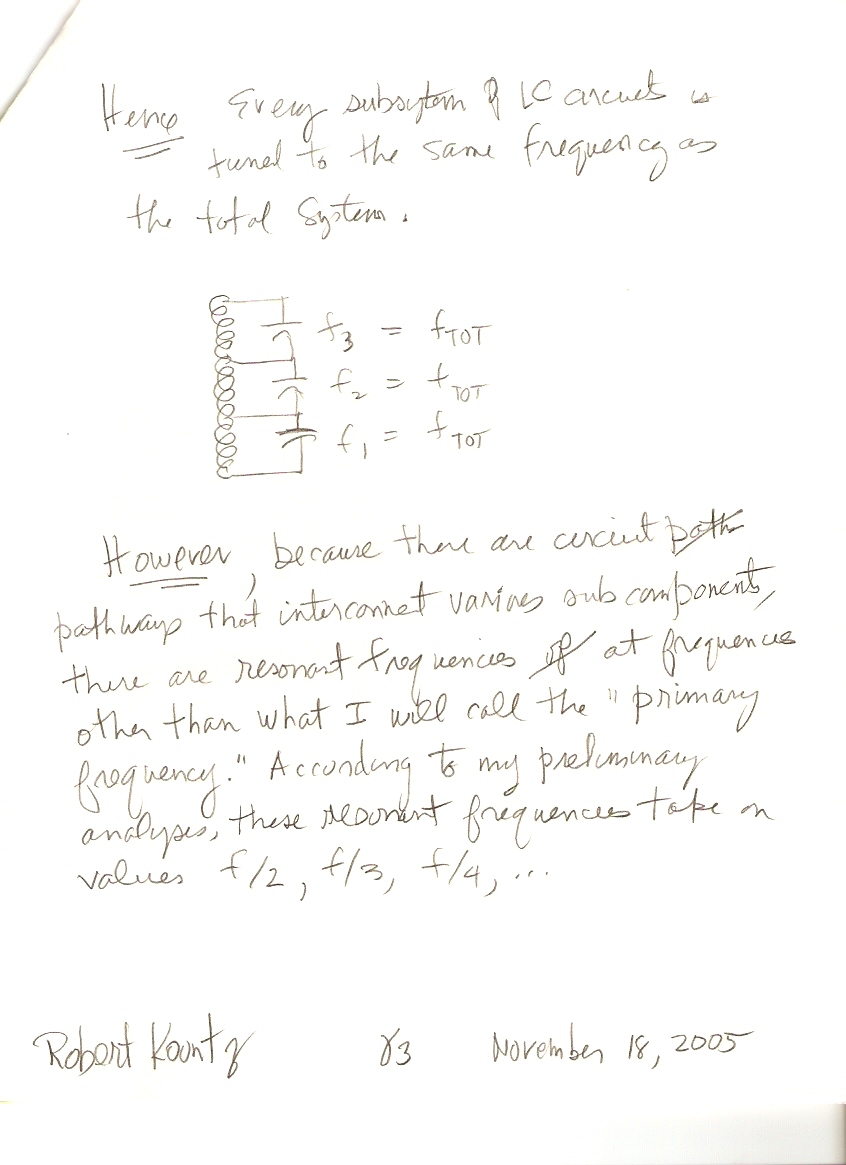 Hence Every subsytem of LC circuit is
tuned to the same frequency as
the total System.
f3 = fTOT
f2 = fTOT
f1 = fTOT
However, because there are circuit path
pathways that interconnet various sub components,
there are resonant frequencies of at frequences
other than what I will call the "primary
frequency." According to my preliminary
analysis, these resonant frequencies take on
values f/2, f/3, f/4, ...
Robert Kountz 83 November 18, 2005